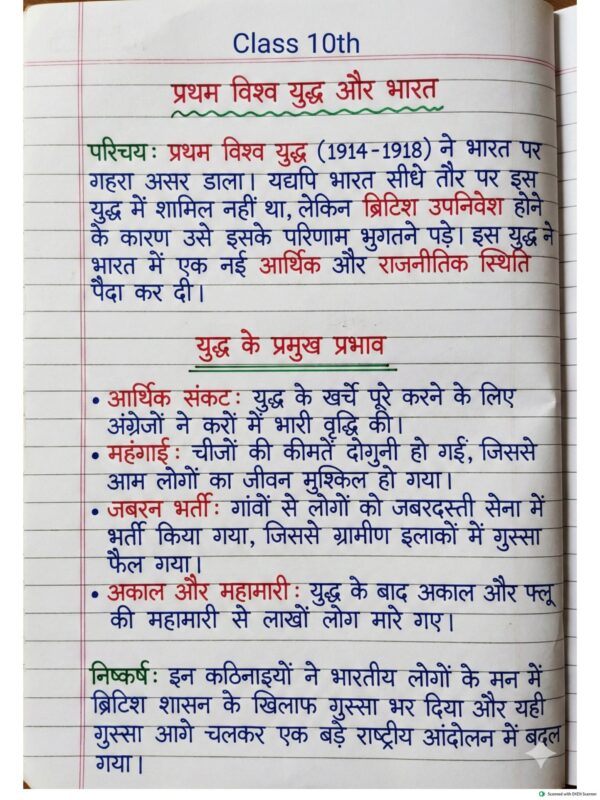 Class 10th
प्रथम विश्व युद्ध और भारत
परिचय: प्रथम विश्व युद्ध (1914-1918) ने भारत पर
गहरा असर डाला। यद्यपि भारत सीधे तौर पर इस
युद्ध में शामिल नहीं था, लेकिन ब्रिटिश उपनिवेश होने
के कारण उसे इसके परिणाम भुगतने पड़े। इस युद्ध ने
भारत में एक नई आर्थिक और राजनीतिक स्थिति
पैदा कर दी।
युद्ध के प्रमुख प्रभाव
• आर्थिक संकट: युद्ध के खर्चे पूरे करने के लिए
अंग्रेजों ने करों में भारी वृद्धि की।
• महंगाई: चीजों की कीमतें दोगुनी हो गईं, जिससे
आम लोगों का जीवन मुश्किल हो गया।
• जबरन भर्ती: गांवों से लोगों को जबरदस्ती सेना में
भर्ती किया गया, जिससे ग्रामीण इलाकों में गुस्सा
फैल गया।
• अकाल और महामारी: युद्ध के बाद अकाल और फ्लू
की महामारी से लाखों लोग मारे गए।
निष्कर्ष: इन कठिनाइयों ने भारतीय लोगों के मन में
ब्रिटिश शासन के खिलाफ गुस्सा भर दिया और यही
गुस्सा आगे चलकर एक बड़े राष्ट्रीय आंदोलन में बदल
गया।
Scanned with OKEN Scanner